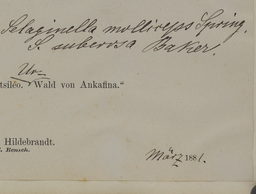 Selaginella molliceps Spring.
S. suberosa Baker.
Ur-
tsiléo. Wald von Ankafina."
Hildebrandt.
Rensch.
März 1881.